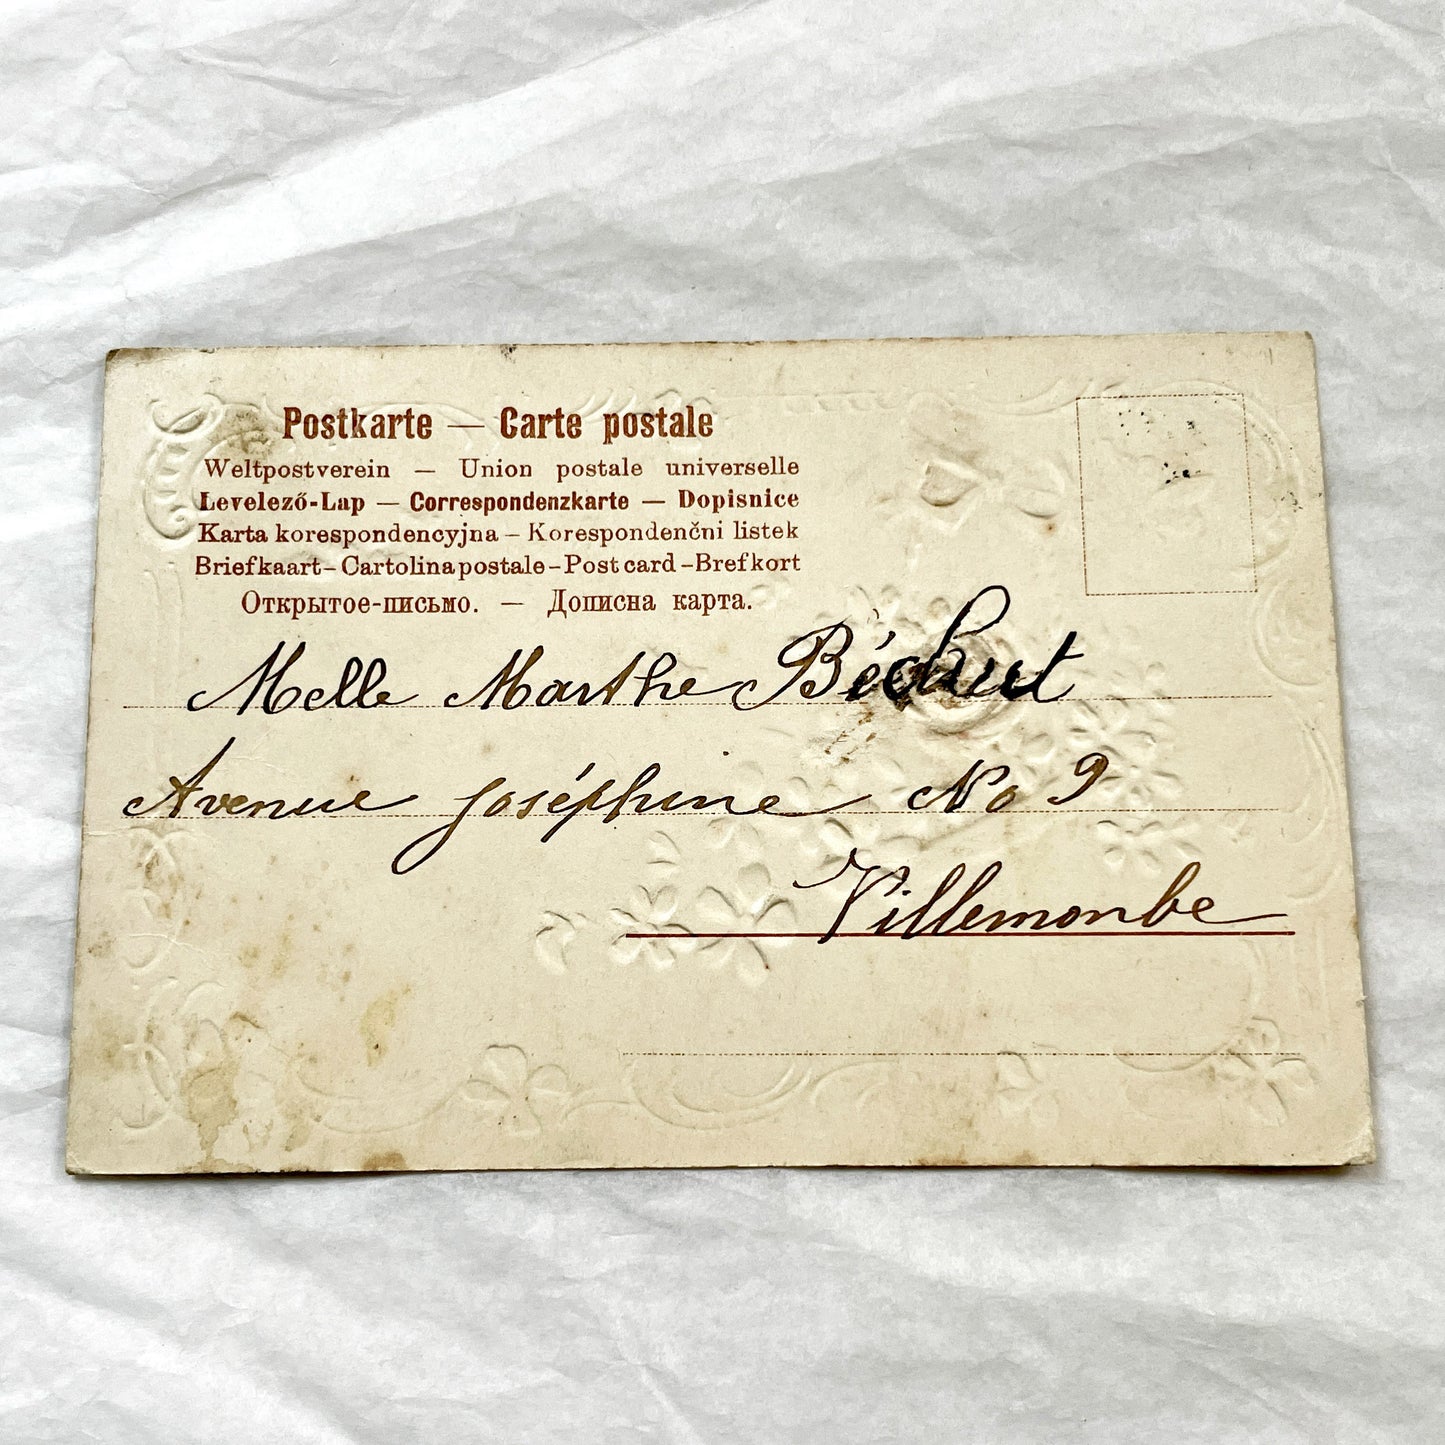 Postkarte — Carte postale
Weltpostverein — Union postale universelle
Levelező-Lap — Correspondenzkarte — Dopisnice
Karta korespondencyjna – Korespondenčni listek
Briefkaart – Cartolina postale – Post card – Brefkort
Открытое-письмо. — Дописна карта.
Melle Marthe
Avenue Joséphine No 9
Villemonbe